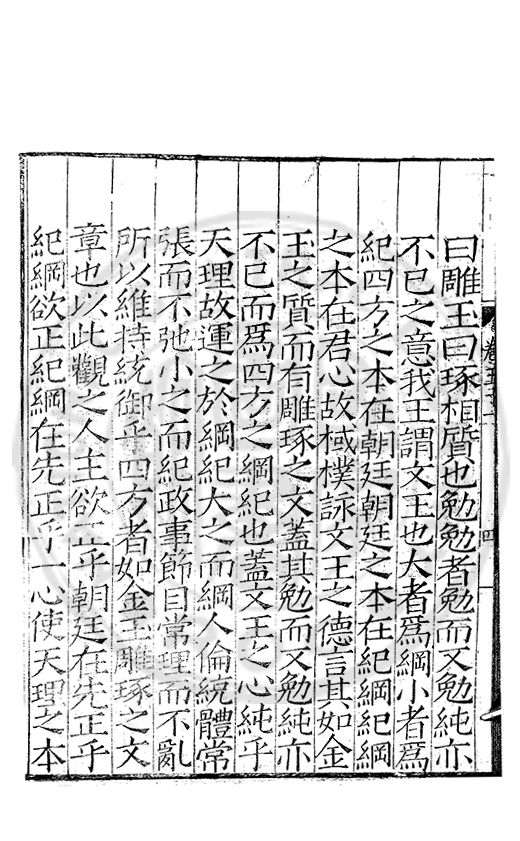 曰雕玉曰琢相質也勉勉者勉而又勉純亦
不已之意我王謂文王也大者爲綱小者爲
紀四方之本在朝廷朝廷之本在紀綱紀綱
之本在君心故棫樸詠文王之德言其如金
玉之質而有雕琢之文蓋其勉而又勉純亦
不已而爲四方之綱紀也蓋文王之心純乎
天理故運之於綱紀大之而綱人倫統體常
張而不弛小之而紀政事節目常理而不亂
所以維持統御乎四方者如金玉雕琢之文
章也以此觀之人主欲正乎朝廷在先正乎
紀綱欲正紀綱在先正乎一心使天理之本